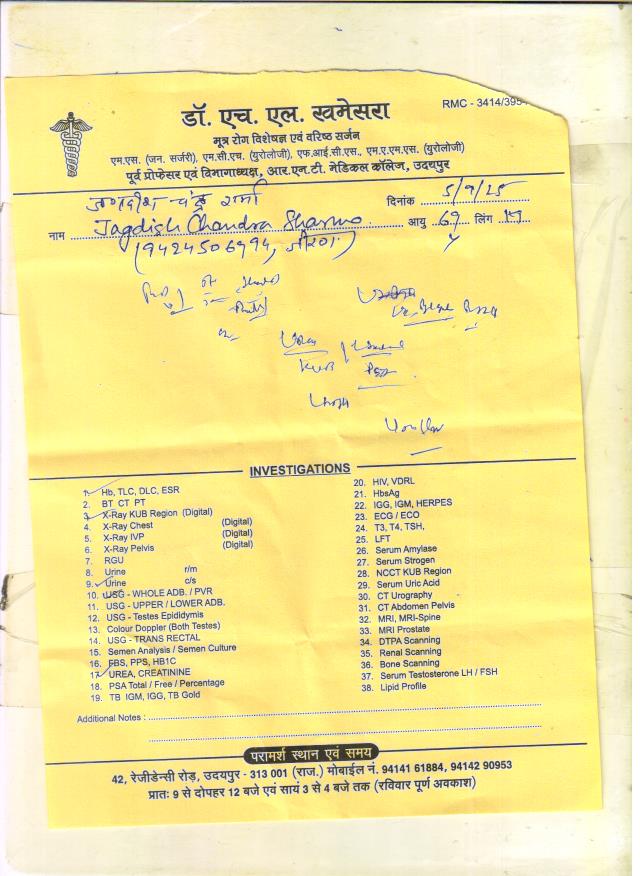 RMC - 3414/395
डॉ. एच. एल. खमेसरा
मूत्र रोग विशेषज्ञ एवं वरिष्ठ सर्जन
एम.एस. (जन. सर्जरी), एम.सी.एच. (युरोलोजी), एफ.आई.सी.एस., एम.ए.एम.एस. (युरोलोजी)
पूर्व प्रोफेसर एवं विभागाध्यक्ष, आर.एन.टी. मेडिकल कॉलेज, उदयपुर
जगदीश चन्द्र शर्मा
दिनांक 5/9/25
नाम Jagdish Chandra Sharma आयु 69 लिंग M
(9424506994, जीरण)
y
KUB
INVESTIGATIONS
1. Hb, TLC, DLC, ESR
2. BT CT PT
3. X-Ray KUB Region (Digital)
4. X-Ray Chest (Digital)
5. X-Ray IVP (Digital)
6. X-Ray Pelvis (Digital)
7. RGU
8. Urine r/m
9. Urine c/s
10. USG - WHOLE ADB. / PVR
11. USG - UPPER / LOWER ADB.
12. USG - Testes Epididymis
13. Colour Doppler (Both Testes)
14. USG - TRANS RECTAL
15. Semen Analysis / Semen Culture
16. FBS, PPS, HB1C
17. UREA, CREATININE
18. PSA Total / Free / Percentage
19. TB IGM, IGG, TB Gold
20. HIV, VDRL
21. HbsAg
22. IGG, IGM, HERPES
23. ECG / ECO
24. T3, T4, TSH,
25. LFT
26. Serum Amylase
27. Serum Strogen
28. NCCT KUB Region
29. Serum Uric Acid
30. CT Urography
31. CT Abdomen Pelvis
32. MRI, MRI-Spine
33. MRI Prostate
34. DTPA Scanning
35. Renal Scanning
36. Bone Scanning
37. Serum Testosterone LH / FSH
38. Lipid Profile
Additional Notes :
परामर्श स्थान एवं समय
42, रेजीडेन्सी रोड़, उदयपुर - 313 001 (राज.) मोबाईल नं. 94141 61884, 94142 90953
प्रातः 9 से दोपहर 12 बजे एवं सायं 3 से 4 बजे तक (रविवार पूर्ण अवकाश)